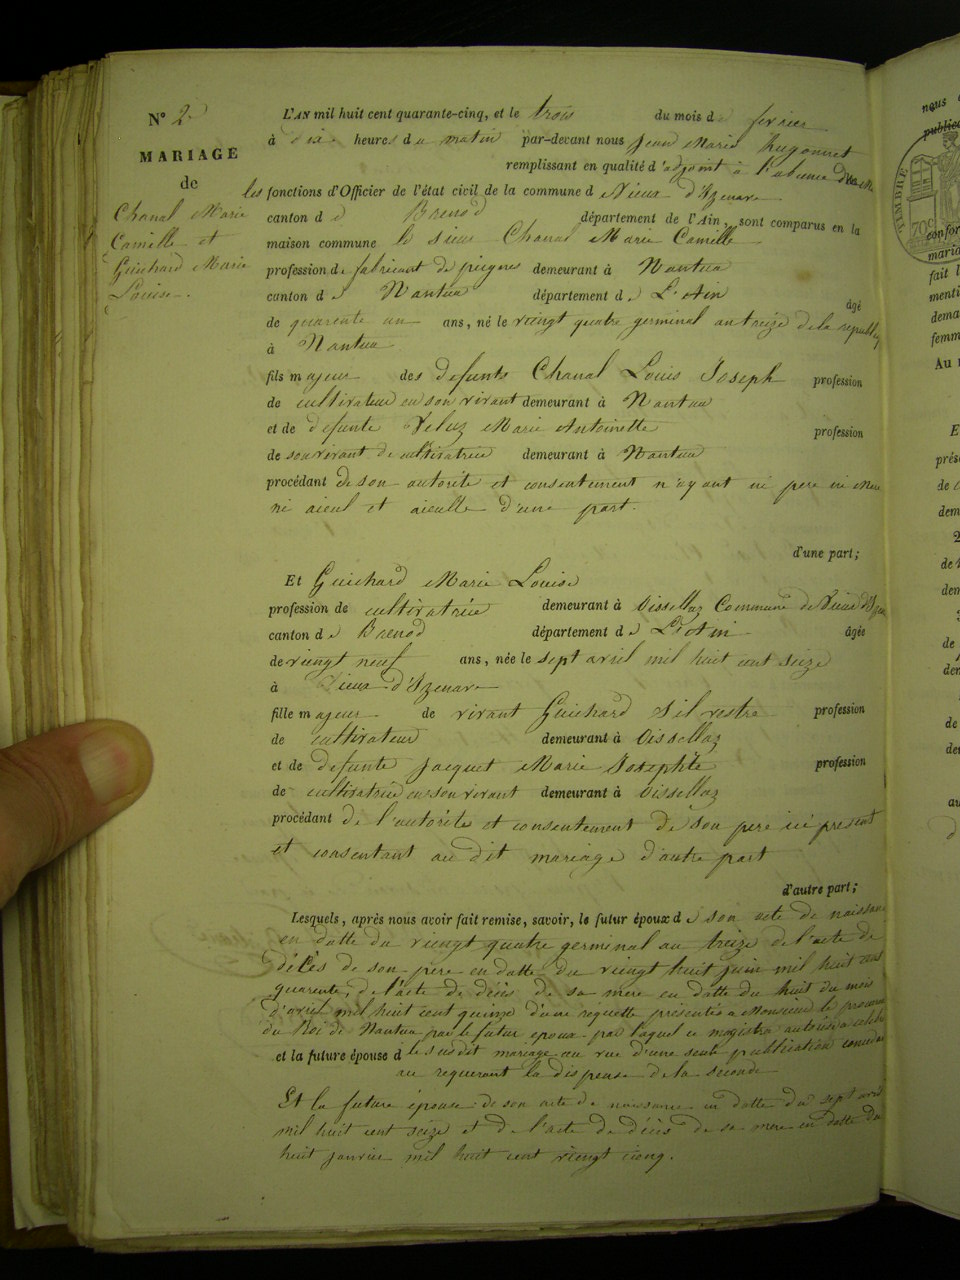 N° 2
MARIAGE
de
Chanal Marie
Camille et
Guichard Marie
Louise.
L'AN mil huit cent quarante-cinq, et le trois du mois de fevrier
à dix heures du matin par-devant nous Jean Marie Hugonnet
remplissant en qualité d'adjoint à l'absence du
les fonctions d'Officier de l'état civil de la commune d Vieux d'Izenave
canton d e Brenod département de l'Ain, sont comparus en la
maison commune le sieur Chanal Marie Camille
profession de fabricant de peignes demeurant à Nantua
canton de Nantua département de L'Ain
âgé
de quarente un ans, né le viengt quatre germinal an treize de la republiq
à Nantua
fils majeur des defunts Chanal Louis Joseph profession
de cultivateur en son vivant demeurant à Nantua
et de defunte Veluz Marie Antoinette profession
de son vivant de cultivatrice demeurant à Nantua
procédant de son autorité et consentement n'ayant ni pere ni mere
ni aieul et aieulle d'une part.
d'une part;
Et Guichard Marie Louise
profession de cultivatrice demeurant à Oissellaz Commune de Vieux d'Izen
canton de Brenod département de L'Ain âgée
de viengt neuf ans, née le sept avril mil huit cent seize
à Vieux d'Izenave
fille majeur de vivant Guichard Silvestre profession
de cultivateur demeurant à Oissellaz
et de defunte Jacquet Marie Josephte profession
de cultivatrice en son vivant demeurant à Oissellaz
procédant de l'autorité et consentement de son pere ici présent
et consentant au dit mariage d'autre part
d'autre part;
Lesquels, après nous avoir fait remise, savoir, le futur époux de son acte de naissance
en datte du viengt quatre germinal an treize de l'acte de
décès de son pere en datte du viengt huit juin mil huit cent
quarente, de l'acte de décès de sa mere en datte du huit du mois
d'avril mil huit cent quinze d'une requette présentée a Monsieur le procureur
du Roi de Nantua par le futur epoux par laquel ce magistra autorise a celebre
et la future épouse d le susdit mariage au vue d'une seule publication
au requerant la dispense de la seconde
Et la future épouse de son acte de naissance en datte du sept avril
mil huit cent seize et de l'acte de décès de sa mere en datte du
huit janvier mil huit cent viengt cieng.
nous
publica
TIMBRE
70c
confor
maria
fait l
menti
dema
femm
Au
E
prés
de
dem
2
de
dem
3
de
dem
de
der
au